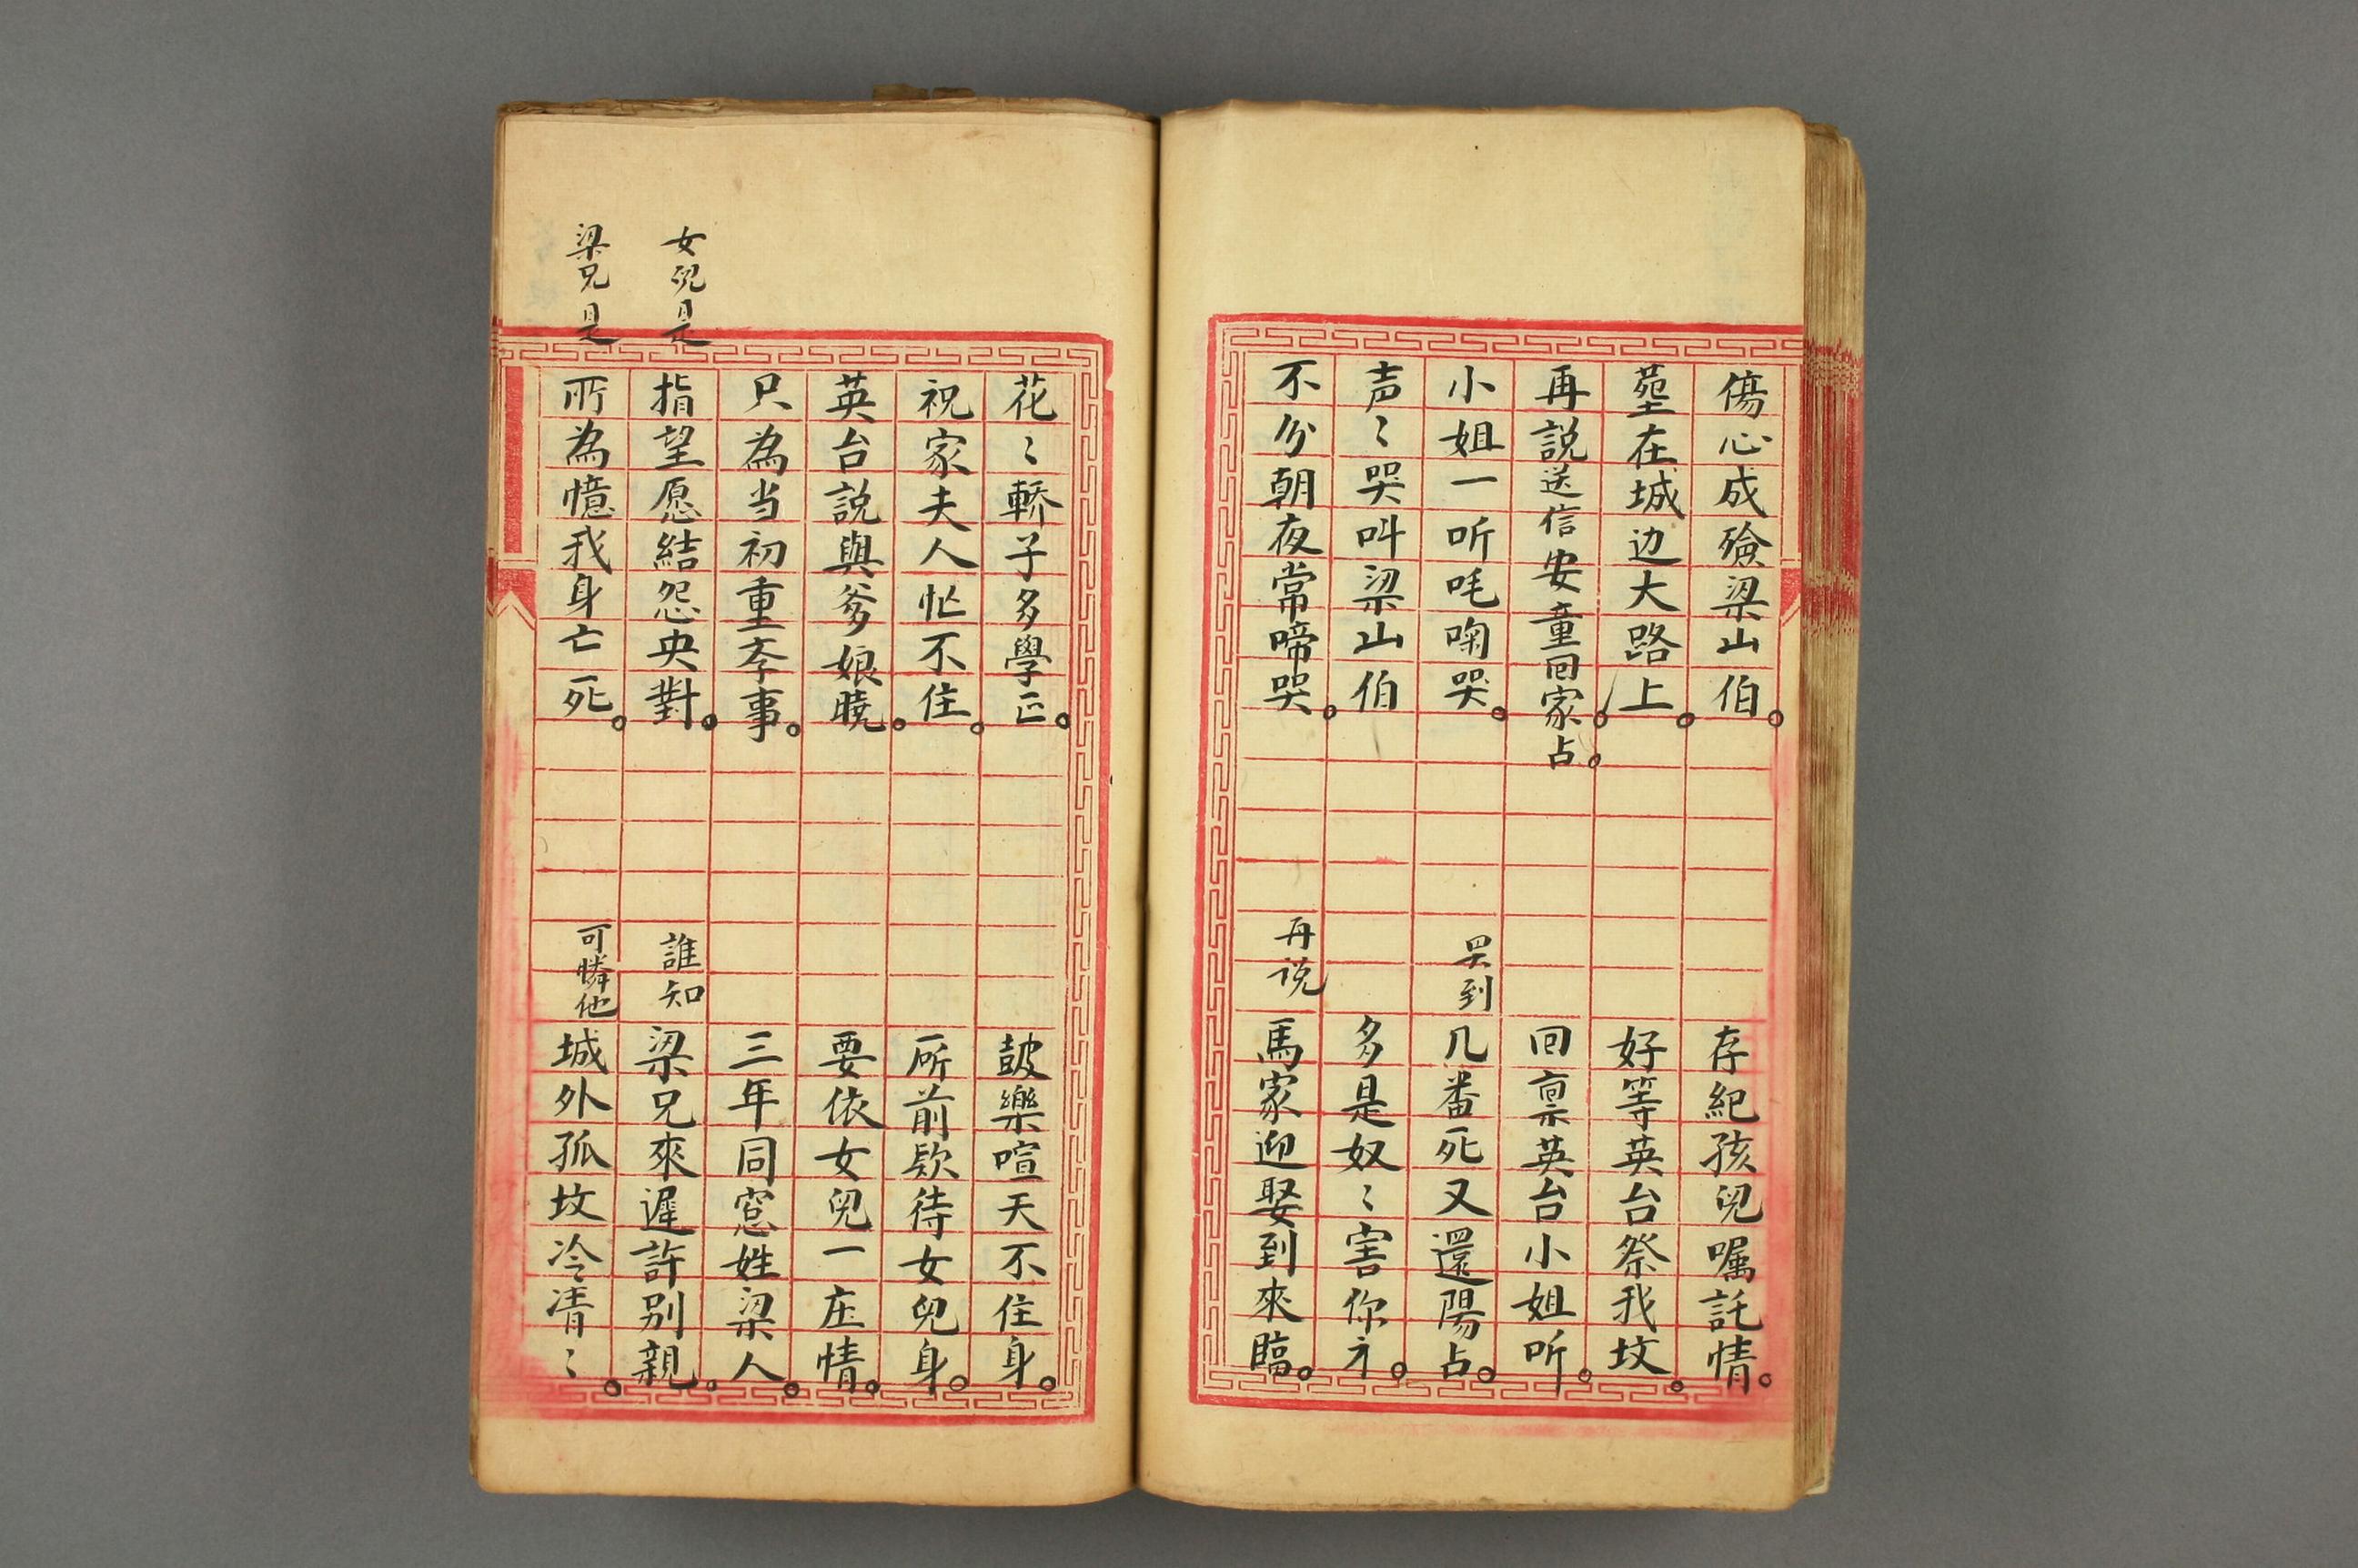 傷心成殮梁山伯。存紀孩兒囑託情。
塟在城边大路上。好等英台祭我坟。
再説送信安童回家占。回禀英台小姐听。
小姐一听吒啕哭。哭到几番死又還陽占。
声〻哭叫梁山伯多是奴〻害你才。
不分朝夜常啼哭。再说馬家迎娶到來臨。
花〻轎子多學正。皷樂喧天不住身。
祝家夫人忙不住。所前欵待女兒身。
英台説與爹娘曉。要依女兒一庄情。
只為当初重孝事。三年同窓姓梁人。
女兒是指望愿結怨央對。誰知梁兄來遲許别親。
梁兄是所為憶我身亡死。可憐他城外孤坟冷清〻。